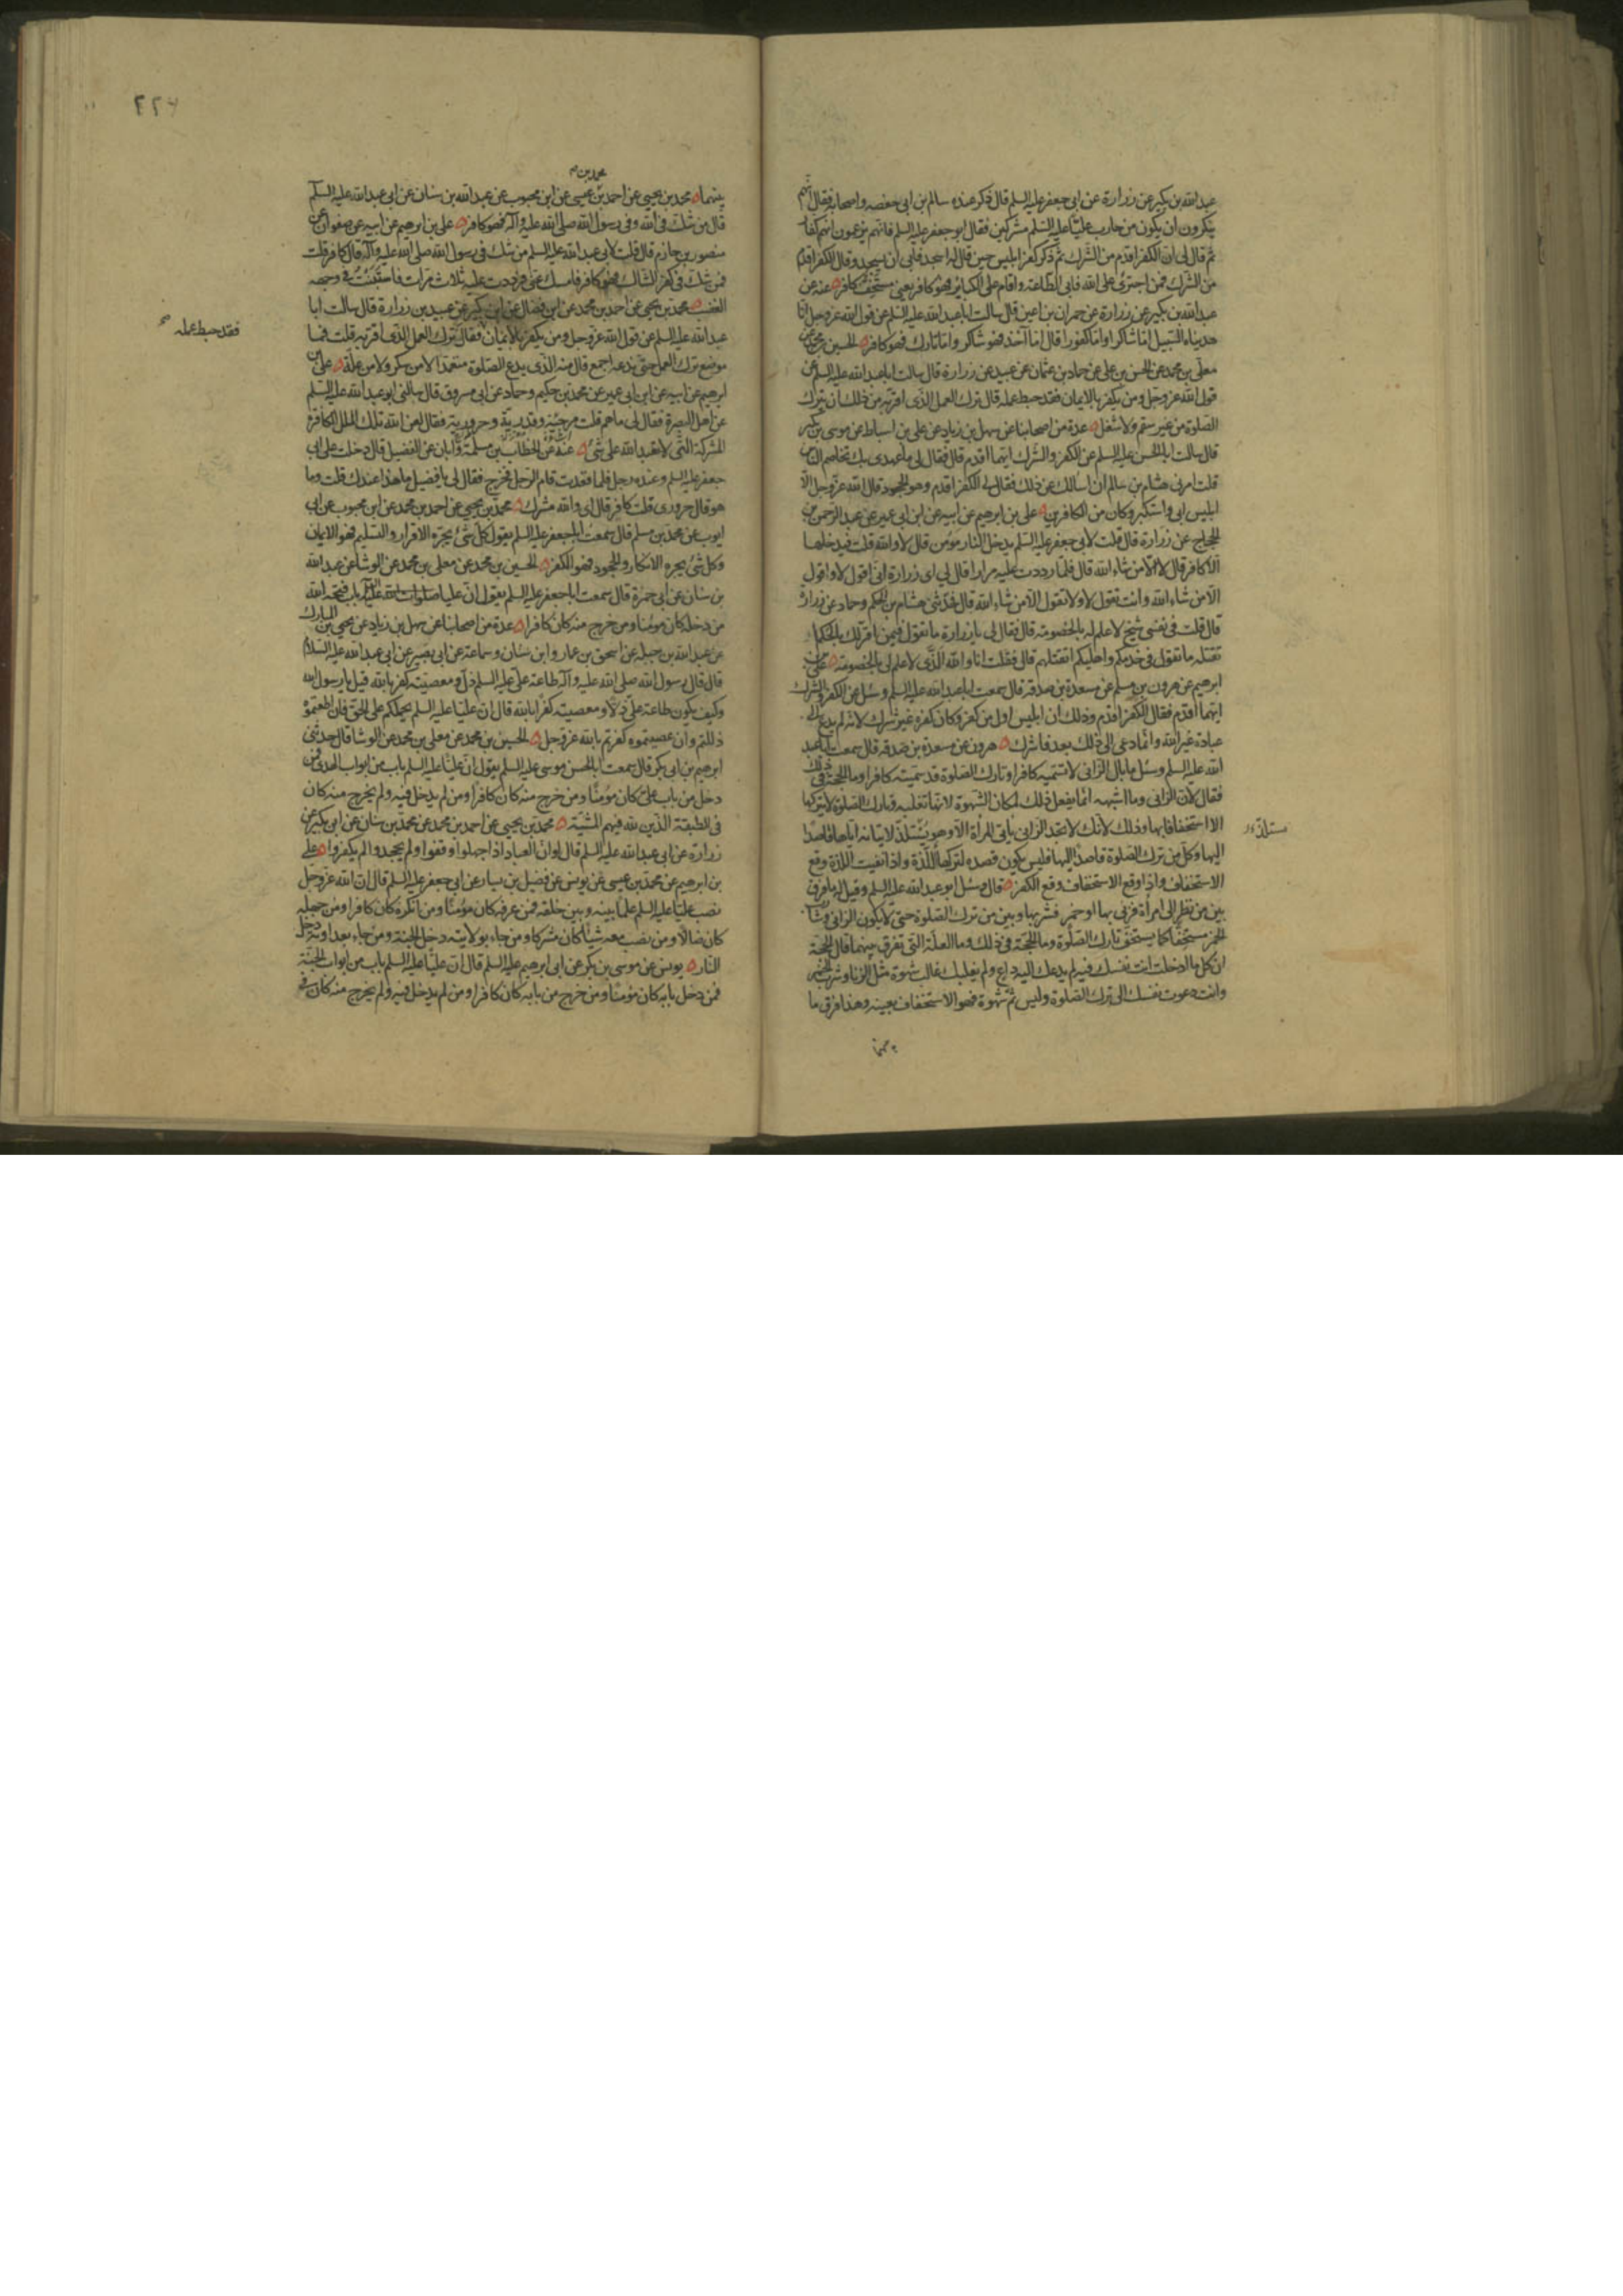 عبدالله بن بكير عن زرارة عن ابى جعفر عليه السلم قال ذكر عنده سالم بن ابى حفصه واصحابه فقال انهم
ينكرون ان يكون من حارب عليا عليه السلم مشركين فقال ابو جعفر عليه السلم فانهم يزعمون انهم كفار
ثم قال لى ان الكفر اقدم من الشرك ثم ذكر كفر ابليس حين قال له اسجد فابى ان يسجد وقال الكفر اقدم
من الشرك فمن اجترى على الله فابى الطاعة واقام على الكبائر فهو كافر يعنى مستخف كافر عنه عن
عبدالله بن بكير عن زرارة عن حمران بن اعين قال سالت اباعبدالله عليه السلم عن قول الله عز وجل انا
هديناه السبيل اما شاكرا واما كفورا قال اما آخذ فهو شاكر واما تارك فهو كافر الحسين بن محمد عن
معلى بن محمد عن الحسن بن على عن حماد بن عثمان عن عبيد عن زرارة قال سالت اباعبدالله عليه السلم عن
قول الله عز وجل ومن يكفر بالايمان فقد حبط عمله قال ترك العمل الذى اقر به من ذلك ان يترك
الصلوة من غير سقم ولا شغل عدة من اصحابنا عن سهل بن زياد عن على بن اسباط عن موسى بن بكير
قال سالت ابا الحسن عليه السلم عن الكفر والشرك ايهما اقدم قال فقال لى ما عهدى بك تخاصم الناس
قلت امرنى هشام بن سالم ان اسالك عن ذلك فقال لى الكفر اقدم وهو الجحود قال الله عز وجل الا
ابليس ابى واستكبر وكان من الكافرين على بن ابرهيم عن ابيه عن ابن ابى عمير عن عبد الرحمن بن
الحجاج عن زرارة قال قلت لابى جعفر عليه السلم يدخل النار مؤمن قال لا والله قلت فيدخلها
الا كافر قال لا الا من شاء الله قال فلما رددت عليه مرارا قال لى اى زرارة انى اقول لا واقول
الا من شاء الله وانت تقول لا ولا تقول الا من شاء الله قال فحدثنى هشام بن الحكم وحماد عن زرارة
قال قلت فى نفسى شيخ لا علم له بالخصومة قال فقال لى يا زرارة ما تقول فيمن اقر لك بالحكم
تقتله ما تقول فى خدمكم واهليكم اتقتلهم قال فقلت انا والله الذى لا علم لى بالخصومة على بن
ابرهيم عن هرون بن مسلم عن مسعدة بن صدقة قال سمعت اباعبدالله عليه السلم وسئل عن الكفر والشرك
ايهما اقدم فقال الكفر اقدم وذلك ان ابليس اول من كفر وكان كفره غير شرك لانه لم يدع الى
عبادة غير الله وانما دعى الى ذلك بعد فاشرك هرون عن مسعدة بن صدقة قال سمعت اباعبد
الله عليه السلم وسئل ما بال الزانى لا تسميه كافرا وتارك الصلوة قد سميته كافرا وما الحجة فى ذلك
فقال لان الزانى وما اشبهه انما يفعل ذلك لمكان الشهوة لانها تغلبه وتارك الصلوة لا يتركها
الا استخفافا بها وذلك لانك لا تجد الزانى ياتى المراة الا وهو يستلذ لاتيانه اياها قاصدا
مستلذ
اليها وكل من ترك الصلوة قاصدا اليها فليس يكون قصده لتركها اللذة واذا نفيت اللذة وقع
الاستخفاف واذا وقع الاستخفاف وقع الكفر قال وسئل ابو عبدالله عليه السلم وقيل له ما فرق
بين من نظر الى امراة فزنى بها او خمر فشربها وبين من ترك الصلوة حتى لا يكون الزانى وشارب
الخمر مستخفا كما يستخف تارك الصلوة وما الحجة فى ذلك وما العلة التى تفرق بينهما قال الحجة
ان كل ما ادخلت انت نفسك فيه لم يدعك اليه داع ولم يغلبك غالب شهوة مثل الزنا وشرب الخمر
وانت دعوت نفسك الى ترك الصلوة وليس ثم شهوة فهو الاستخفاف بعينه وهذا فرق ما
بينهما
٢٢٦
محمد بن
بينهما محمد بن يحيى عن احمد بن عيسى عن ابن محبوب عن عبدالله بن سنان عن ابى عبدالله عليه السلم
قال من شك فى الله وفى رسول الله صلى الله عليه وآله فهو كافر على بن ابرهيم عن ابيه عن صفوان عن
منصور بن حازم قال قلت لابى عبدالله عليه السلم من شك فى رسول الله صلى الله عليه وآله قال كافر قلت
فمن شك فى كفر الشاك فهو كافر فامسك عنى فرددت عليه ثلاث مرات فاستبنت فى وجهه
الغضب محمد بن يحيى عن احمد بن محمد عن ابن فضال عن ابن بكير عن عبيد بن زرارة قال سالت ابا
عبدالله عليه السلم عن قول الله عز وجل ومن يكفر بالايمان فقال ترك العمل الذى اقر به قلت فما
فقد حبط عمله
موضع ترك العمل حتى يدعه اجمع قال منه الذى يدع الصلوة متعمدا لا من سكر ولا من علة على بن
ابرهيم عن ابيه عن ابن ابى عمير عن محمد بن حكيم وحماد عن ابى مسروق قال سالنى ابو عبدالله عليه السلم
عن اهل البصرة فقال لى ما هم قلت مرجئة وقدرية وحرورية فقال لعن الله تلك الملل الكافرة
المشركة التى لا تعبد الله على شئ عنه عن الخطاب بن مسلمة وابان عن الفضيل قال دخلت على ابى
جعفر عليه السلم وعنده رجل فلما قعدت قام الرجل فخرج فقال لى يا فضيل ما هذا عندك قلت وما
هو قال حرورى قلت كافر قال اى والله مشرك محمد بن يحيى عن احمد بن محمد عن ابن محبوب عن ابى
ايوب عن محمد بن مسلم قال سمعت ابا جعفر عليه السلم يقول كل شئ يجره الاقرار والتسليم فهو الايمان
وكل شئ يجره الانكار والجحود فهو الكفر الحسين بن محمد عن معلى بن محمد عن الوشا عن عبدالله
بن سنان عن ابى حمزة قال سمعت ابا جعفر عليه السلم يقول ان عليا صلوات الله عليه باب فتحه الله
من دخله كان مؤمنا ومن خرج منه كان كافرا عدة من اصحابنا عن سهل بن زياد عن يحيى بن المبارك
عن عبدالله بن جبلة عن اسحق بن عمار وابن سنان وسماعة عن ابى بصير عن ابى عبدالله عليه السلام
قال قال رسول الله صلى الله عليه وآله طاعة على عليه السلم ذل ومعصيته كفر بالله قيل يا رسول الله
وكيف يكون طاعة على ذلا ومعصيته كفرا بالله قال ان عليا عليه السلم يحملكم على الحق فان اطعتموه
ذللتم وان عصيتموه كفرتم بالله عز وجل الحسين بن محمد عن معلى بن محمد عن الوشا قال حدثنى
ابرهيم بن ابى بكر قال سمعت ابا الحسن موسى عليه السلم يقول ان عليا عليه السلم باب من ابواب الهدى فمن
دخل من باب على كان مؤمنا ومن خرج منه كان كافرا ومن لم يدخل فيه ولم يخرج منه كان
فى الطبقة الذين لله فيهم المشية محمد بن يحيى عن احمد بن محمد عن محمد بن سنان عن ابن بكير عن
زرارة عن ابى عبدالله عليه السلم قال لو ان العباد اذا جهلوا وقفوا ولم يجحدوا لم يكفروا على
بن ابرهيم عن محمد بن عيسى عن يونس عن فضيل بن يسار عن ابى جعفر عليه السلم قال ان الله عز وجل
نصب عليا عليه السلم علما بينه وبين خلقه فمن عرفه كان مؤمنا ومن انكره كان كافرا ومن جهله
كان ضالا ومن نصب معه شيئا كان مشركا ومن جاء بولايته دخل الجنة ومن جاء بعداوته دخل
النار يونس عن موسى بن بكر عن ابى ابرهيم عليه السلم قال ان عليا عليه السلم باب من ابواب الجنة
فمن دخل بابه كان مؤمنا ومن خرج من بابه كان كافرا ومن لم يدخل فيه ولم يخرج منه كان فى